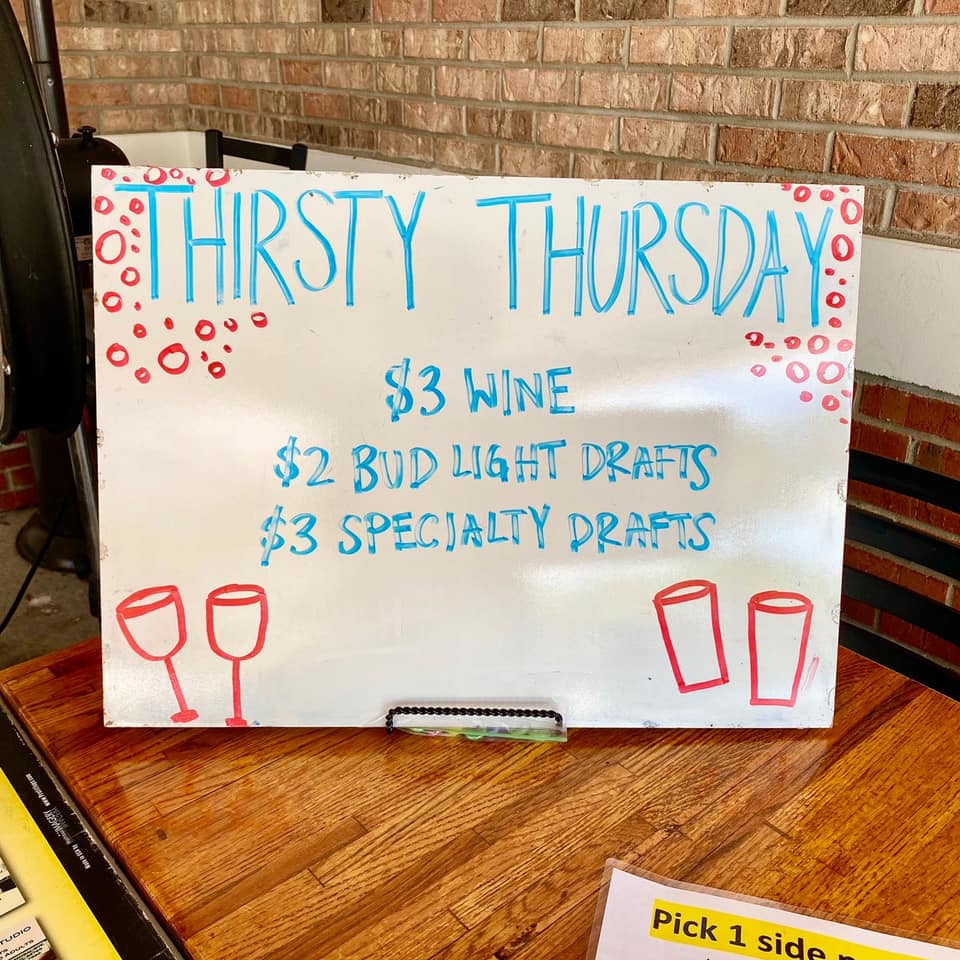 THIRSTY THURSDAY
$3 WINE
$2 BUD LIGHT DRAFTS
$3 SPECIALTY DRAFTS
Pick 1 side
TUDIO
ADULTS